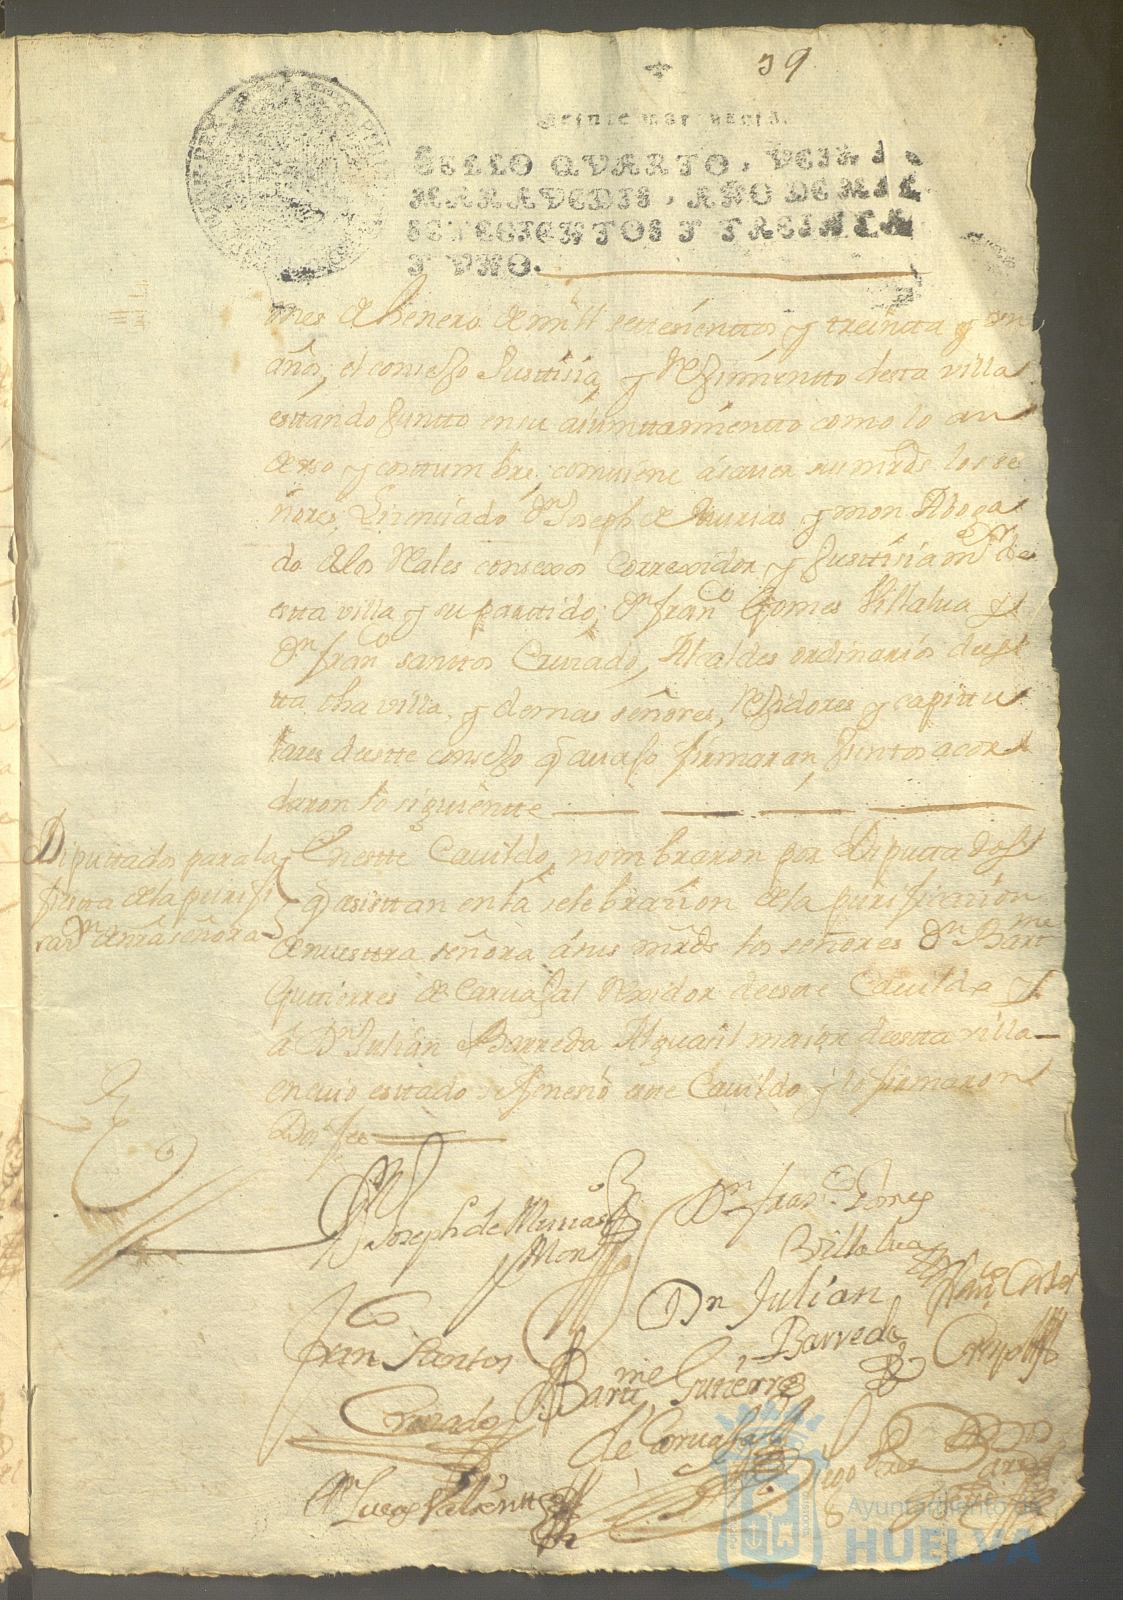 39
Veinte maravedis.
SELLO QVARTO, VEINTE
MARAVEDIS, AÑO DE MIL
SETECIENTOS Y TREINTA
Y VNO.
mes de henero de mill setesienttos y treintta y un
años, el consejo Justtisia, y Rejimientto desta villa
esttando juntto en su aiunttamientto como lo an
de uso y costtumbre, combiene á saver sus mrds los se
ñores Lisensiado Dn Joseph de Murias y mon Aboga
do de los Reales consexos Correxidor y Justtisia mor de
estta villa y su parttido; Dn Franco Gomes Villalva y
Dn Franco santtos Cruzado, Alcaldes ordinarios de es
tta dha villa, y demas señores, Rejidores y capittu
lares de estte consejo q avajo firmaran, juntos acor
daron lo siguientte
Diputtados para la
fiesta de la purifi
caon de nra señora
En estte Cavildo, nombraron por Diputtados
q asisttan en la selebrasion de la purificasion
de nuestra señora á sus mrds los señores Dn Bartme
Gutierres de Carvajal Rexidor de este Cavildo y
á Dn Julian Barreda Alguasil maior de estta villa
en cuio esttado se fenesio este Cavildo y lo firmaron
Doi fee
Joseph de Murias
y Mon
Dn Franco Gomes
Villalva
Dn Julian
Barreda
Fran Santos
Cruzado
Bartme Gutierres
de Carvajal
Lucas Valientte
Ayuntamiento de
HUELVA